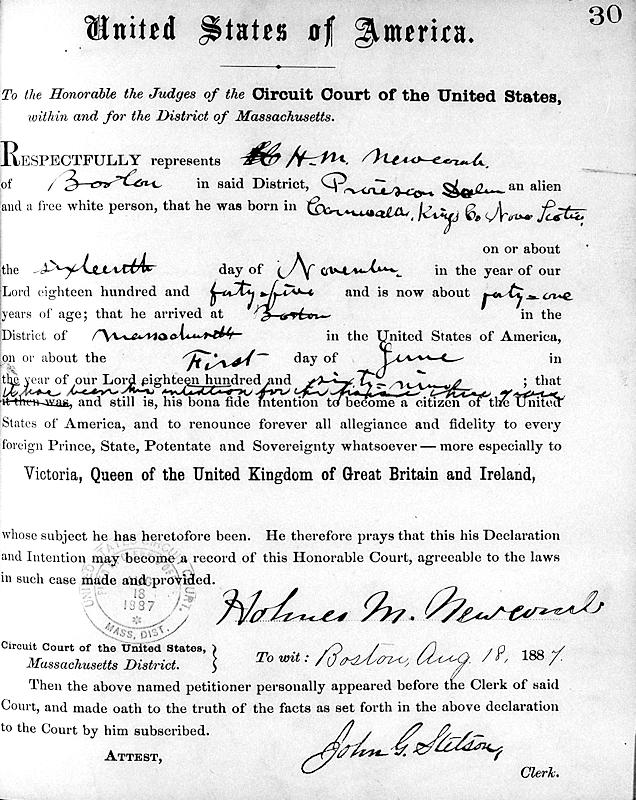 30
United States of America.
To the Honorable the Judges of the Circuit Court of the United States,
within and for the District of Massachusetts.
RESPECTFULLY represents H. M. Newcomb.
of Boston in said District, Provision Salm an alien
and a free white person, that he was born in Cornwallis, Kings Co Nova Scotia,
on or about
the sixteenth day of November in the year of our
Lord eighteen hundred and forty-five and is now about forty-one
years of age; that he arrived at Boston in the
District of Massachusetts in the United States of America,
on or about the First day of June in
the year of our Lord eighteen hundred and sixty-nine ; that
it has been his intention for the three years
it then was, and still is, his bona fide intention to become a citizen of the United
States of America, and to renounce forever all allegiance and fidelity to every
foreign Prince, State, Potentate and Sovereignty whatsoever — more especially to
Victoria, Queen of the United Kingdom of Great Britain and Ireland,
whose subject he has heretofore been. He therefore prays that this his Declaration
and Intention may become a record of this Honorable Court, agreeable to the laws
in such case made and provided.
18
1887
MASS. DIST.
Holmes M. Newcomb
Circuit Court of the United States,
Massachusetts District.
To wit: Boston, Aug. 18, 1887.
Then the above named petitioner personally appeared before the Clerk of said
Court, and made oath to the truth of the facts as set forth in the above declaration
to the Court by him subscribed.
ATTEST,
John G. Stetson,
Clerk.